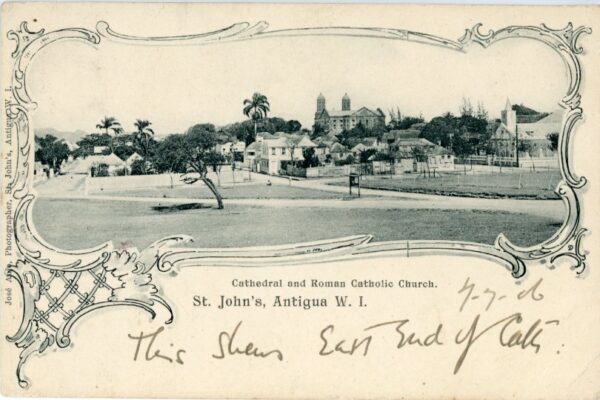 José Anjo, Photographer, St. John's, Antigua W. I.
Cathedral and Roman Catholic Church.
St. John's, Antigua W. I.
7-7-06
This shews East End of Cath: